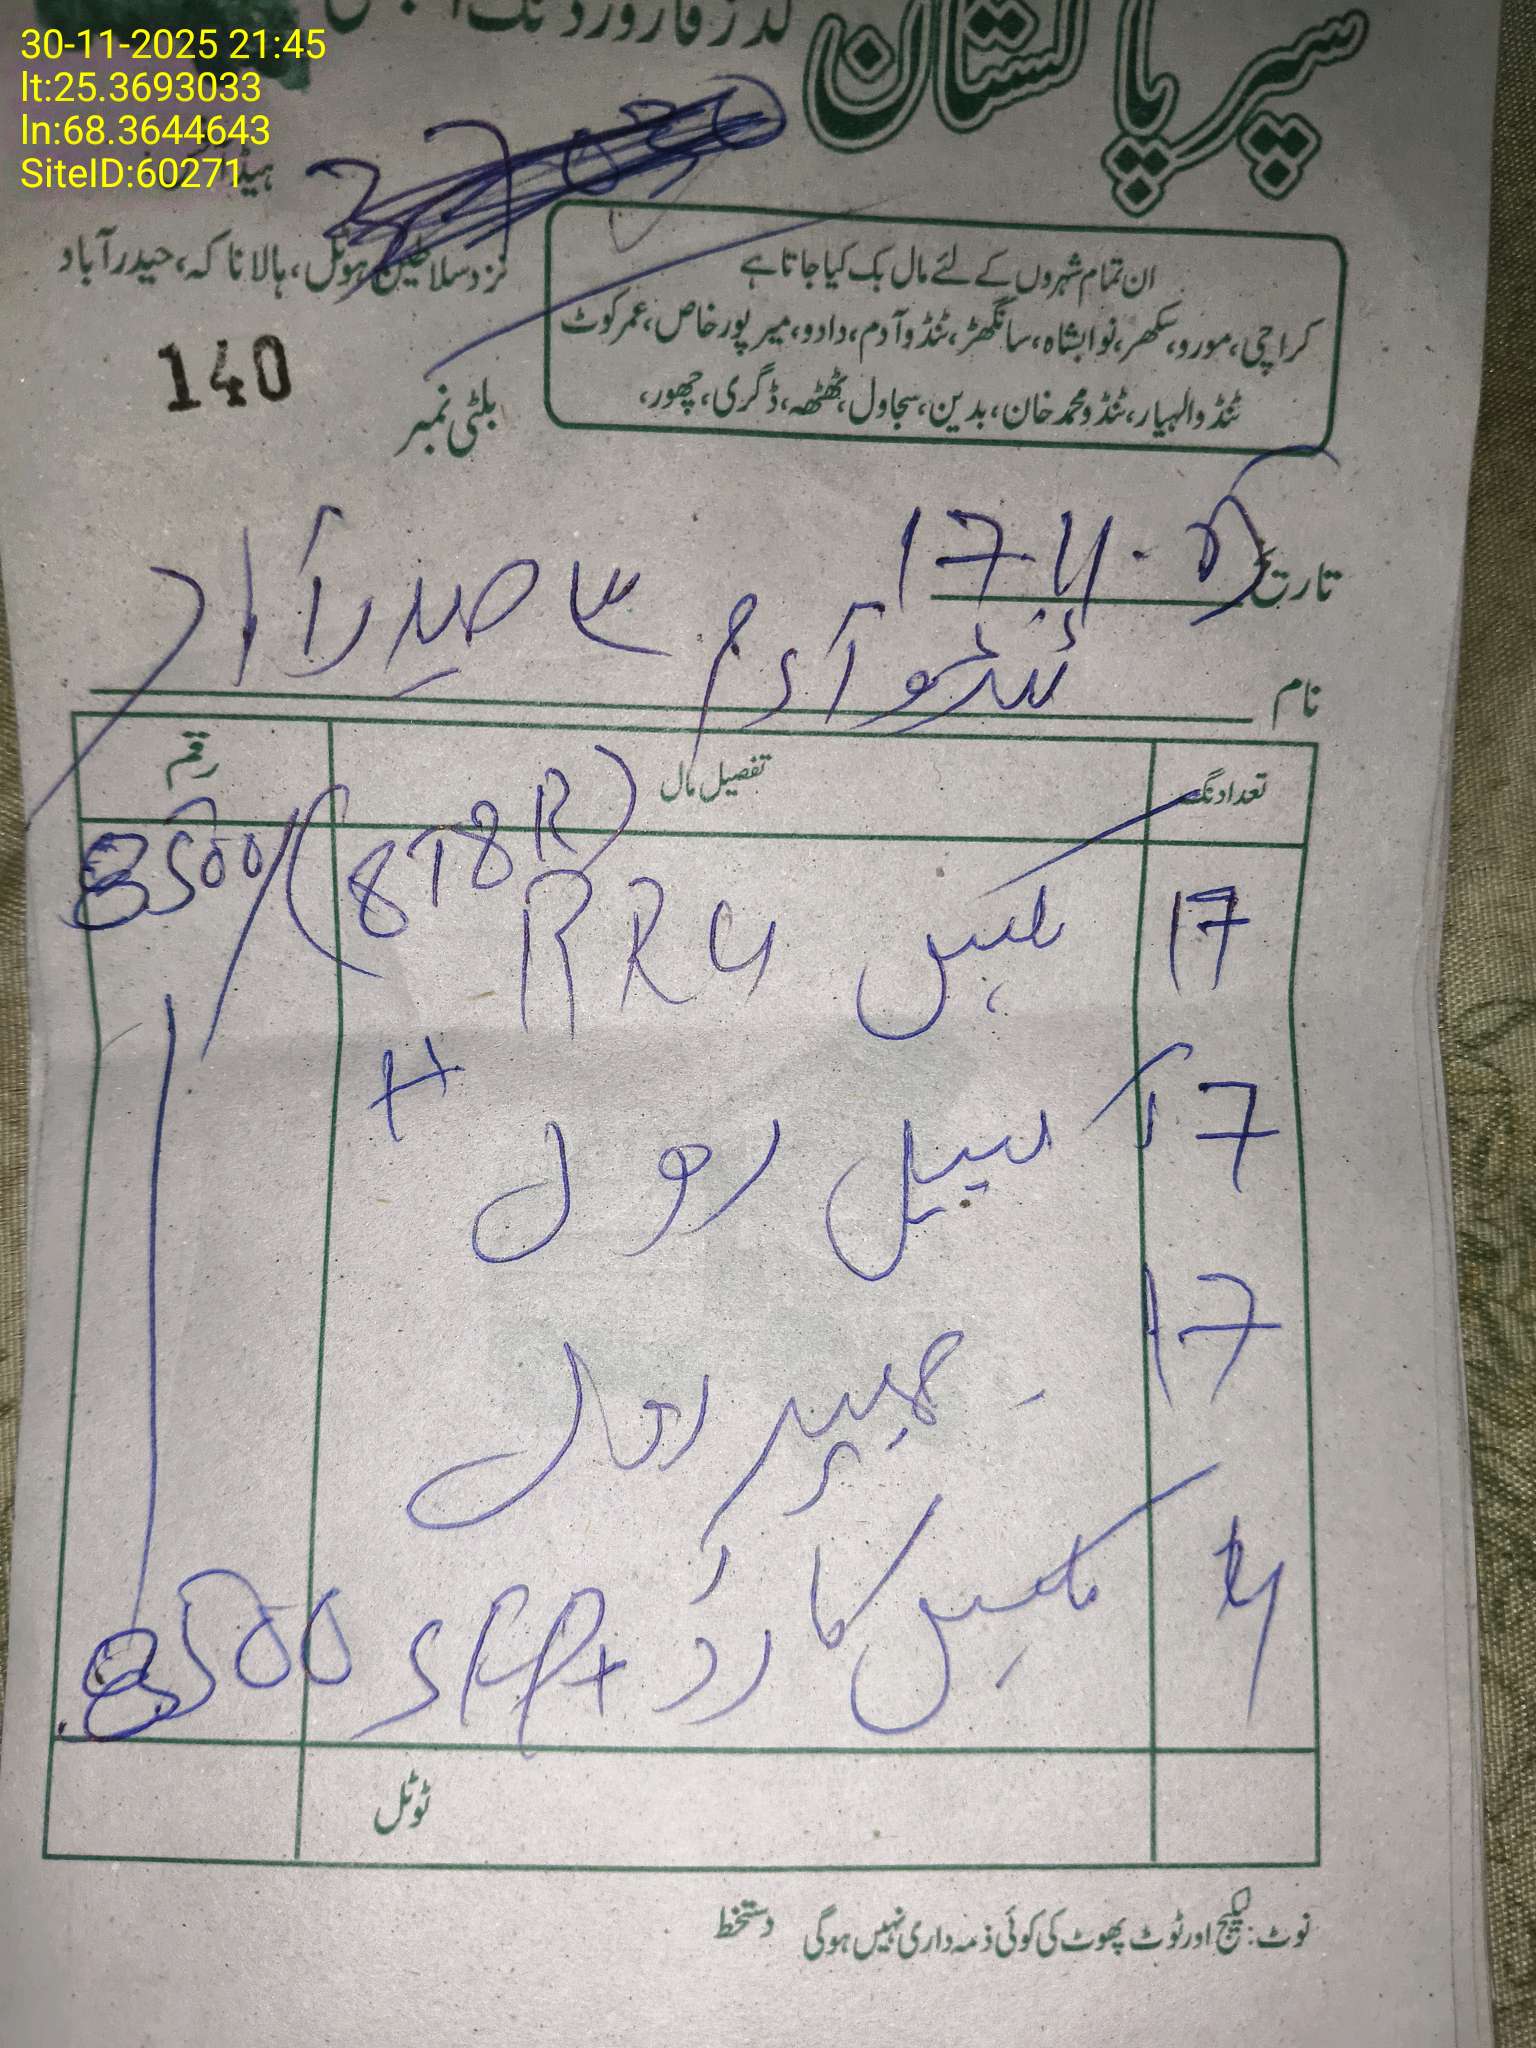 30-11-2025 21:45
lt:25.3693033
ln:68.3644643
SiteID:60271
سپر پاکستان گڈز فارورڈنگ
نزد سلاطین ہوٹل، ہالا ناکہ، حیدرآباد
ان تمام شہروں کے لئے مال بک کیا جاتا ہے
کراچی، مورو، سکھر، نوابشاہ، سانگھڑ، ٹنڈوآدم، دادو، میرپورخاص، عمرکوٹ
ٹنڈوالہیار، ٹنڈومحمدخان، بدین، سجاول، ٹھٹھہ، ڈگری، چھور،
بلٹی نمبر 140
تاریخ 17-11-
نام ٹنڈو آدم حیدرآباد
تعداد نگ تفصیل مال رقم
17 بکس RRU (8T8R) 8500/
17 کیبل رول +
17 رول
4 بکس کارڈ + 8500
ٹوٹل
نوٹ: لیکیج اور ٹوٹ پھوٹ کی کوئی ذمہ داری نہیں ہوگی دستخط